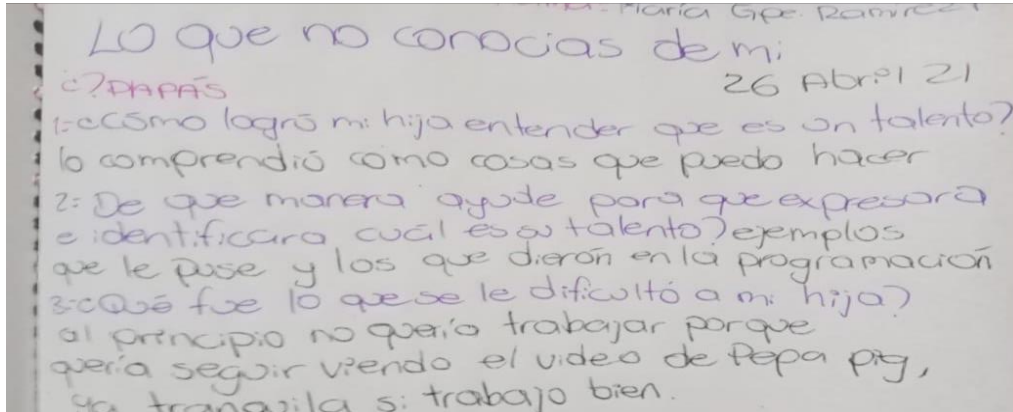 María Gpe. Ramírez
Lo que no conocias de mi
¿?PAPÁS
26 Abril 21
1-¿Cómo logró mi hija entender que es un talento?
lo comprendió como cosas que puedo hacer
2: De que manera ayude para que expresara
e identificara cuál es su talento? ejemplos
que le puse y los que dierón en la programación
3-¿Qué fue lo que se le dificultó a mi hija?
al principio no quería trabajar porque
quería seguir viendo el video de Pepa pig,
ya tranquila si trabajo bien.